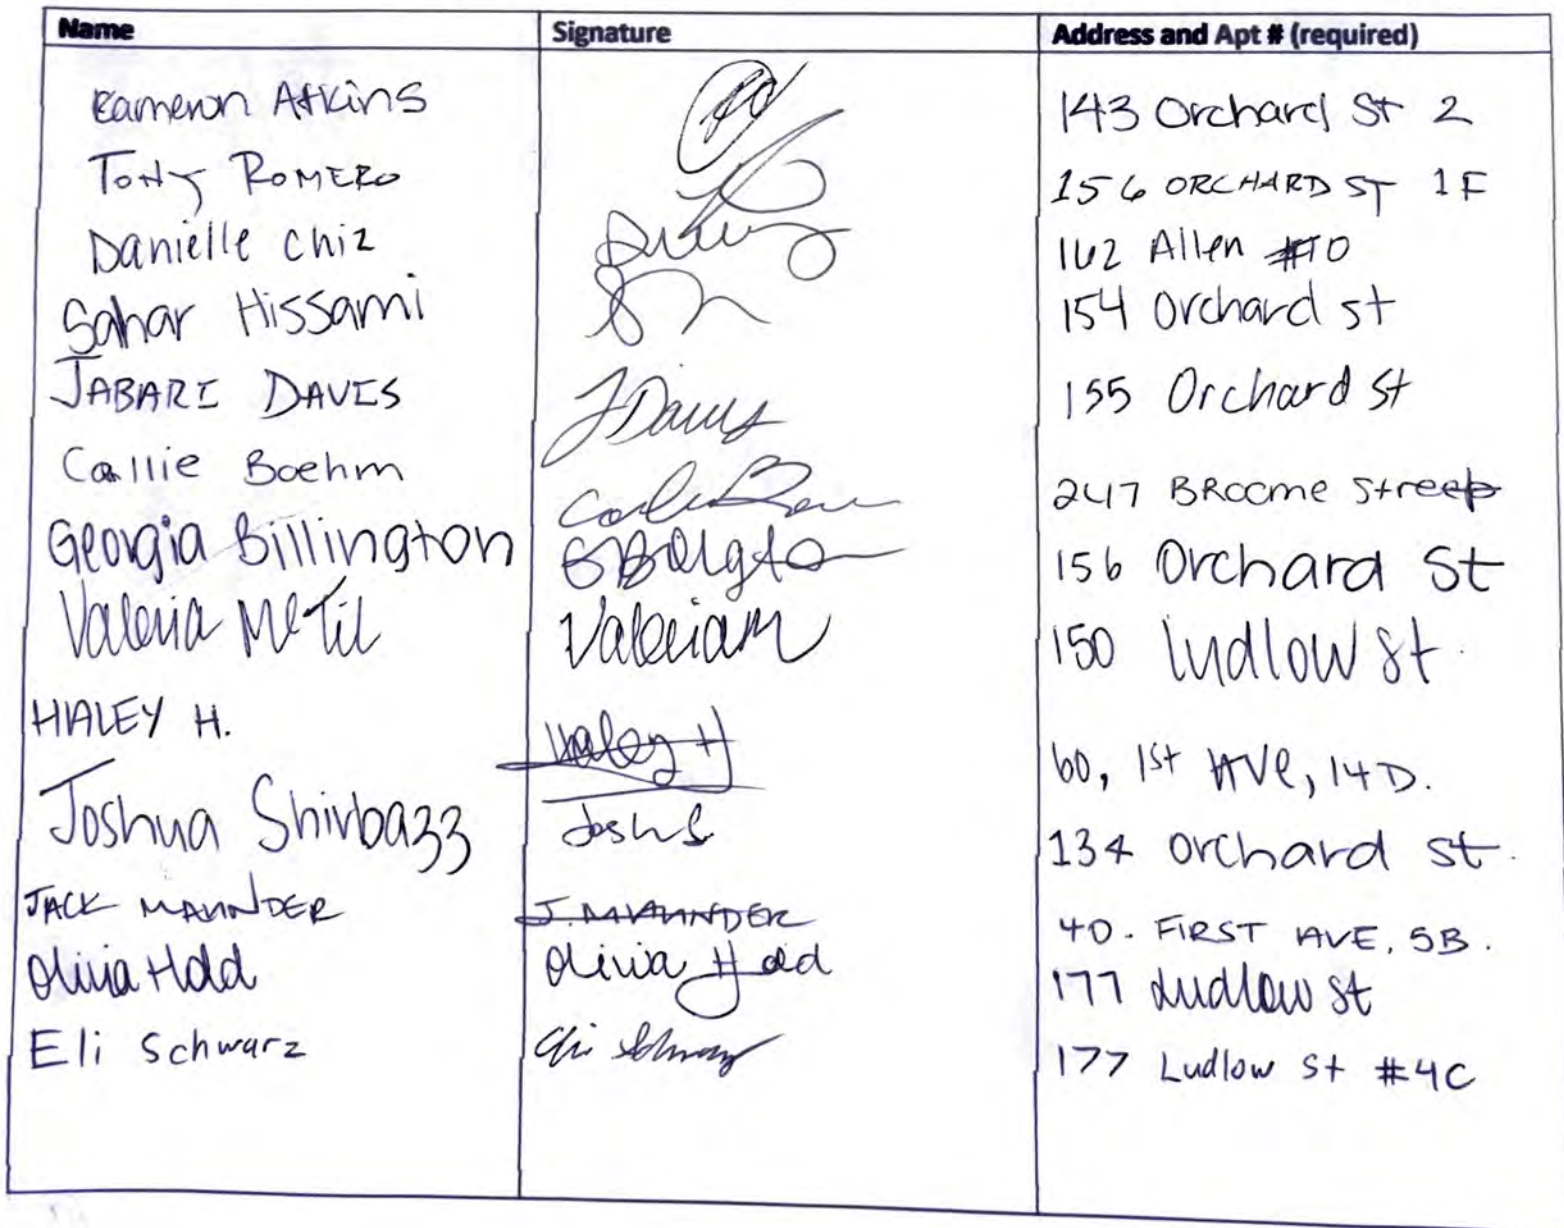 Name Signature Address and Apt # (required)
Kameron Atkins 143 Orchard St 2
Tony Romero 156 ORCHARD ST 1F
Danielle Chiz 162 Allen #10
Sahar Hissami 154 Orchard St
JABARI DAVIS J Davis 155 Orchard St
Callie Boehm 247 BRoome Street
Georgia Billington 156 Orchard St
Valeria Valeriam 150 Ludlow St.
HALEY H. Haley H 60, 1st AVE, 14D.
Joshua Shirbazz Josh S 134 Orchard St.
JACK MAUNDER J. MAUNDER 40. FIRST AVE, 5B.
Olivia Hold Olivia Hold 177 Ludlow St
Eli Schwarz Eli Schwarz 177 Ludlow St #4C